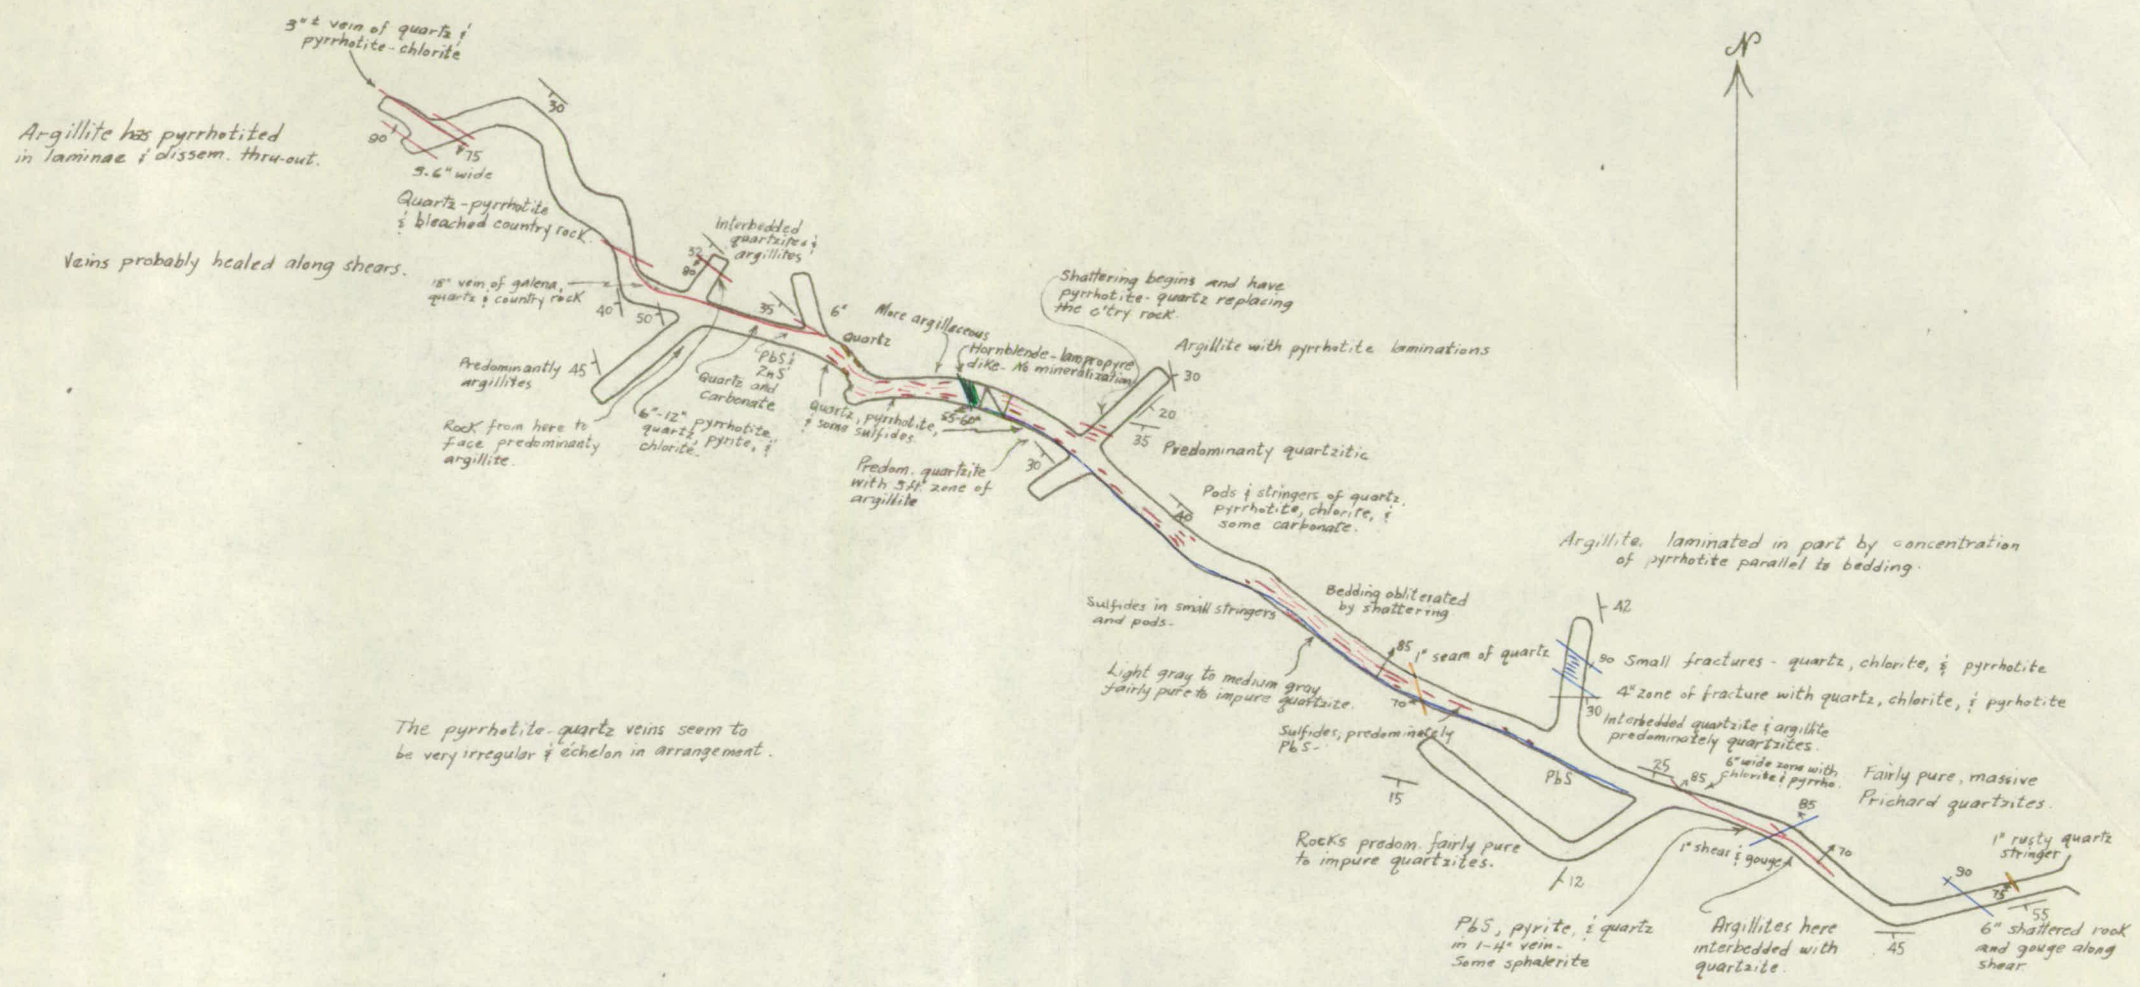 N
3" ± vein of quartz &
pyrrhotite-chlorite
30
Argillite has pyrrhotited
in laminae & dissem. thru-out.
90
75
3-6" wide
Quartz-pyrrhotite
& bleached country rock.
Veins probably healed along shears.
18" vein of galena,
quartz & country rock
Interbedded
quartzites &
argillites
32
80
40
50
35
6"
quartz
More argillaceous
Hornblende-lampropyre
dike- No mineralization
Shattering begins and have
pyrrhotite-quartz replacing
the c'try rock.
Argillite with pyrrhotite laminations
30
20
35
Predominanty quartzitic
Predominantly
argillites
45
PbS &
ZnS
Quartz and
carbonate
Rock from here to
face predominanty
argillite.
6"-12" pyrrhotite,
quartz, pyrite, &
chlorite.
Quartz, pyrrhotite,
& some sulfides
55-60°
Predom. quartzite
with 3ft. zone of
argillite
30
Pods & stringers of quartz.
pyrrhotite, chlorite, &
some carbonate.
40
Argillite, laminated in part by concentration
of pyrrhotite parallel to bedding.
Sulfides in small stringers
and pods.
Bedding obliterated
by shattering
42
85
1" seam of quartz
90
Small fractures - quartz, chlorite, & pyrrhotite
4" zone of fracture with quartz, chlorite, & pyrhotite
30
Light gray to medium gray
fairly pure to impure quartzite.
70
Interbedded quartzite & argillite
predominately quartzites.
Sulfides, predominately
PbS-
The pyrrhotite-quartz veins seem to
be very irregular & echelon in arrangement.
15
PbS
25
85
6" wide zone with
chlorite & pyrrho.
Fairly pure, massive
Prichard quartzites.
85
Rocks predom. fairly pure
to impure quartzites.
1" shear & gouge
70
1" rusty quartz
stringer
12
90
75
55
45
PbS, pyrite, & quartz
in 1-4" vein-
Some sphalerite
Argillites here
interbedded with
quartzite.
6" shattered rock
and gouge along
shear